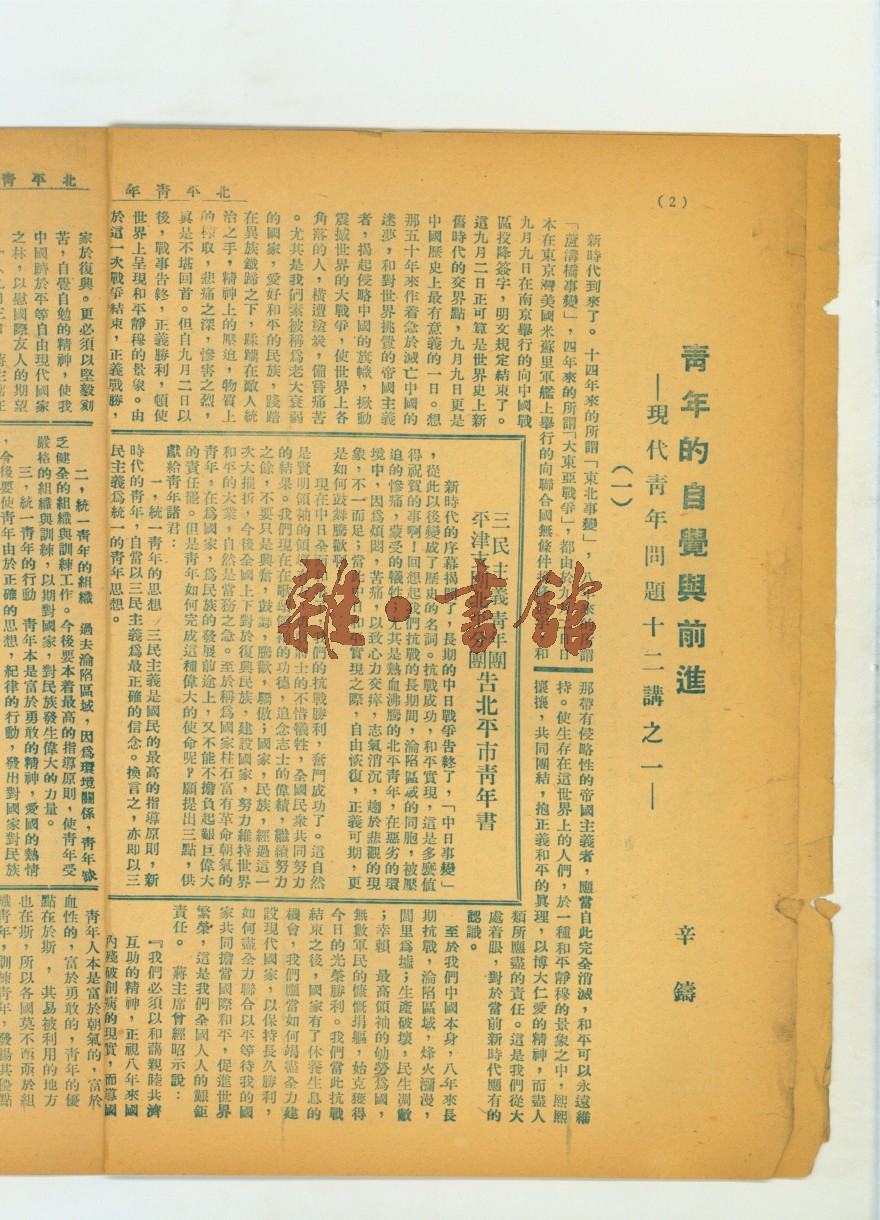 (2)
北平青年
青年的自覺與前進
—現代青年問題十二講之一—
辛鑄
(一)
新時代到來了。十四年來的所謂「東北事變」，八年來的所謂
「蘆溝橋事變」，四年來的所謂「大東亞戰爭」，都由於九月二日日
本在東京灣美國米蘇里軍艦上舉行的向聯合國無條件投降簽字和
九月九日在南京舉行的向中國戰
區投降簽字，明文規定結束了。
這九月二日正可算是世界史上新
舊時代的交界點，九月九日更是
中國歷史上最有意義的一日。想
那五十年來作着急於滅亡中國的
迷夢，和對世界挑釁的帝國主義
者，揭起侵略中國的旗幟，掀動
震撼世界的大戰爭，使世界上各
角落的人，橫遭塗炭，備嘗痛苦
。尤其是我們素被稱爲老大衰弱
的國家，愛好和平的民族，踐踏
在異族鐵蹄之下，蹂躪在敵人統
治之手，精神上的壓迫，物質上
的榨取，悲痛之深，慘害之烈，
眞是不堪回首。但自九月二日以
後，戰事告終，正義勝利，頓使
世界上呈現和平靜穆的景象。由
於這一次戰爭結束，正義戰勝，
那帶有侵略性的帝國主義者，應當自此完全消滅，和平可以永遠維
持。使生存在這世界上的人們，於一種和平靜穆的景象之中，熙熙
攘攘，共同團結，抱正義和平的眞理，以博大仁愛的精神，而盡人
類所應盡的責任。這是我們從大
處着眼，對於當前新時代應有的
認識。
至於我們中國本身，八年來長
期抗戰，淪陷區域，烽火瀰漫，
閭里爲墟；生產破壞，民生凋敝
；幸賴　最高領袖的劬勞爲國，
無數軍民的慷慨捐軀，始克獲得
今日的光榮勝利。我們當此抗戰
結束之後，國家有了休養生息的
機會，我們應當如何竭盡全力建
設現代國家，以保持長久勝利，
如何盡全力聯合以平等待我的國
家共同擔當國際和平，促進世界
繁榮，這是我們全國人人的艱鉅
責任。　蔣主席曾經昭示說：
『我們必須以和藹親睦共濟
互助的精神，正視八年來國
內殘破創痍的現實，而導國
三民主義青年團
平津支團北平分團
告北平市青年書
新時代的序幕揭開了，長期的中日戰爭告終了，「中日事變」
，從此以後變成了歷史的名詞。抗戰成功，和平實現，這是多麼值
得祝賀的事啊！回想起我們抗戰的長期間，淪陷區域的同胞，被壓
迫的慘痛，蒙受的犧牲，尤其是熱血沸騰的北平青年，在惡劣的環
境中，因爲煩悶，苦痛，以致心力交瘁，志氣消沉，趨於悲觀的現
象，不一而足；當此中日和平實現之際，自由恢復，正義可期，更
是如何鼓舞騰歡啊
現在中日全面和平，我們的抗戰勝利，奮鬥成功了。這自然
是賢明領袖的領導，將士的不惜犧牲，全國民衆共同努力
的結果。我們現在在歌頌領袖的功德，追念志士的偉績，繼續努力
之餘，不要只是興奮，鼓舞，騰歡，驕傲；國家，民族，經過這一
次大摧折，今後全國上下對於復興民族，建設國家，努力維持世界
和平的大業，自然是當務之急。至於稱爲國家柱石富有革命朝氣的
青年，在爲國家，爲民族的發展前途上，又不能不擔負起艱巨偉大
的責任罷。但是青年如何完成這種偉大的使命呢？願提出三點，供
獻給青年諸君：
一，統一青年的思想　三民主義是國民的最高的指導原則，新
時代的青年，自當以三民主義爲最正確的信念。換言之，亦即以三
民主義爲統一的青年思想。
北平青
家於復興。更必須以堅毅刻
苦，自覺自勉的精神，使我
中國躋於平等自由現代國家
之林，以慰國際友人的期望
二，統一青年的組織　過去淪陷區域，因爲環境關係，青年缺
乏健全的組織與訓練工作。今後要本着最高的指導原則，使青年受
嚴格的組織與訓練，以期對國家，對民族發生偉大的力量。
三，統一青年的行動　青年本是富於勇敢的精神，愛國的熱情
，今後要使青年由於正確的思想，紀律的行動，發出對國家對民族
青年人本是富於朝氣的，富於
血性的，富於勇敢的，青年的優
點在於斯，其易被利用的地方
也在斯，所以各國莫不斤斤於組
織青年，訓練青年，發揚其優點
雜·書館